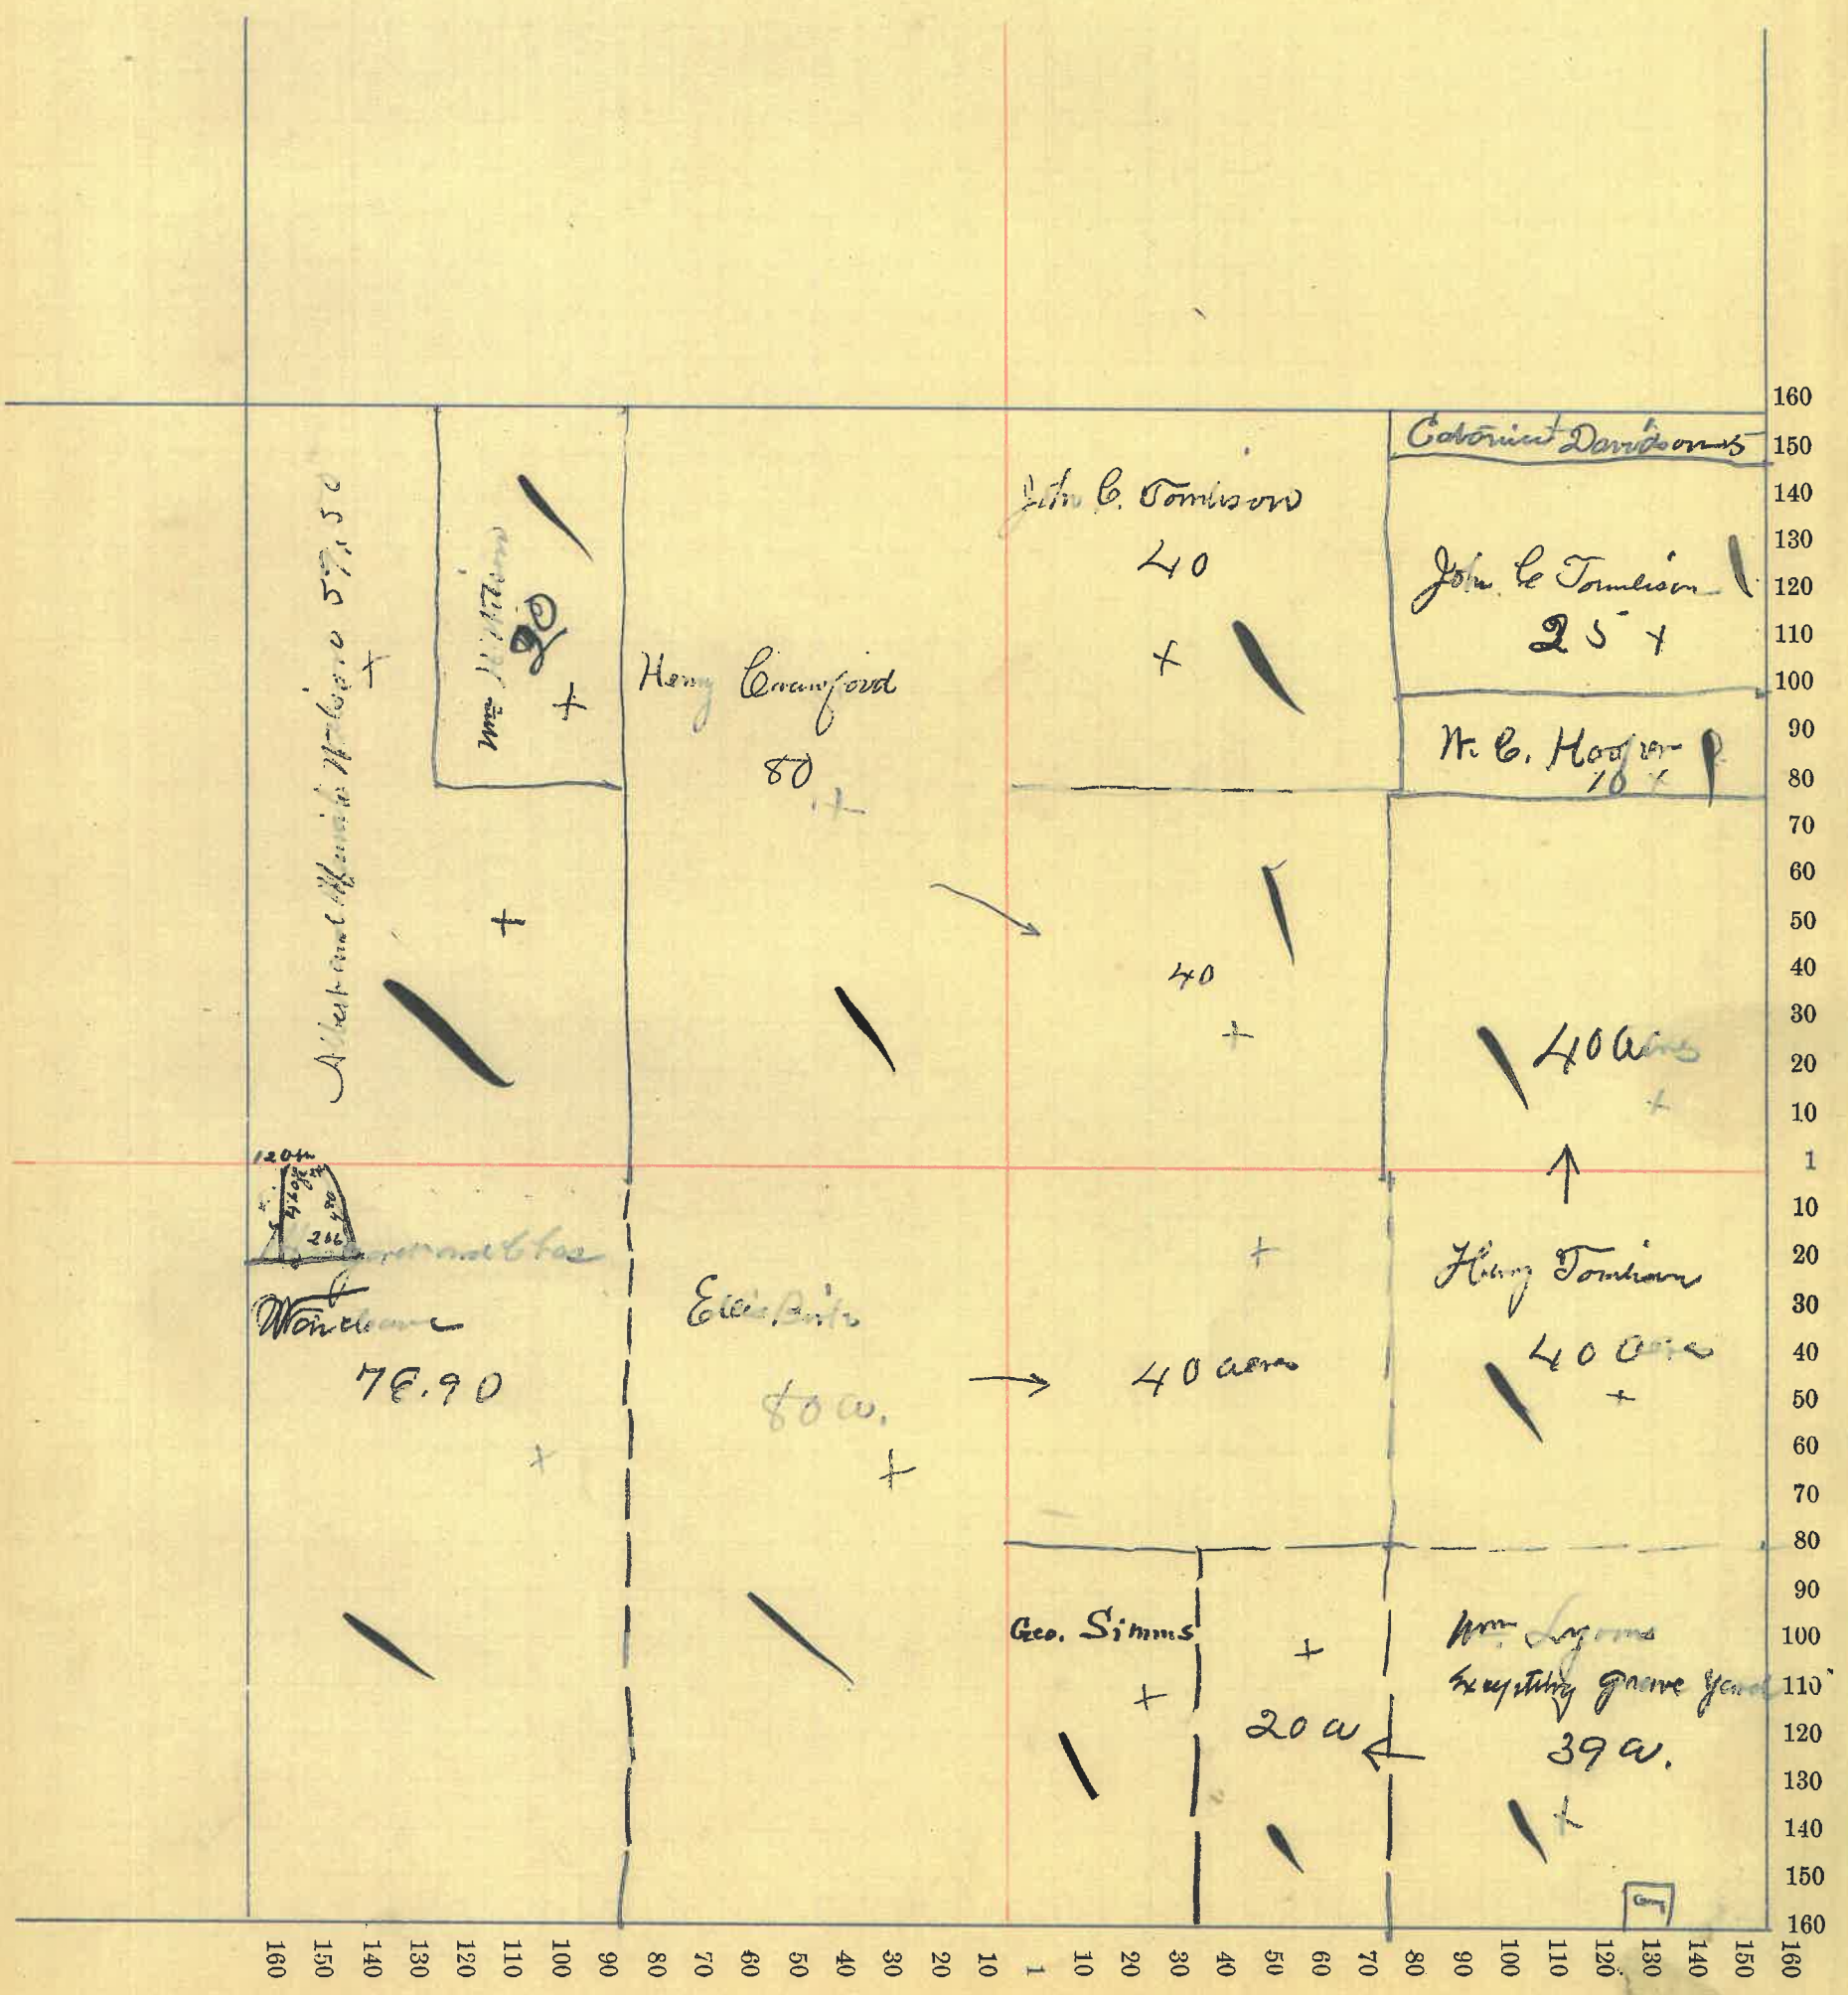 160
Davidson 5
150
140
130
120
110
100
90
80
70
60
50
40
30
20
10
1
10
20
30
40
50
60
70
80
90
100
110
120
130
140
150
160
John C. Tomlison
40
John C Tomlison
25 x
W. C.
10 x
Albert and 57.50
Wm
20
Henry Crawford
80
40
40 acres
120
266
and Chas
78.90
Ellis
80 a.
40 acres
Henry Tomlison
40 acres
Geo. Simms
20 a
Wm. Lyons
Excepting grave yard
39 a.
Cem
160 150 140 130 120 110 100 90 80 70 60 50 40 30 20 10 1 10 20 30 40 50 60 70 80 90 100 110 120 130 140 150 160